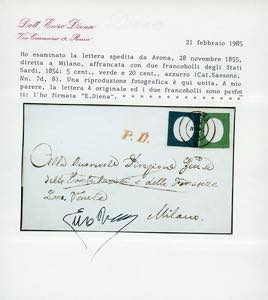 Dott. Enzo Diena
21 febbraio 1985
Ho esaminato la lettera spedita da Arona, 28 novembre 1855,
diretta a Milano, affrancata con due francobolli degli Stati
Sardi, 1854: 5 cent., verde e 20 cent., azzurro (Cat.Sassone,
Nn. 7d, 8). Una riproduzione fotografica è qui unita. A mio
parere, la lettera è originale ed i due francobolli sono perfet
ti: l'ho firmata "E.Diena".
P.D.
delle e delle Finanze
Milano.